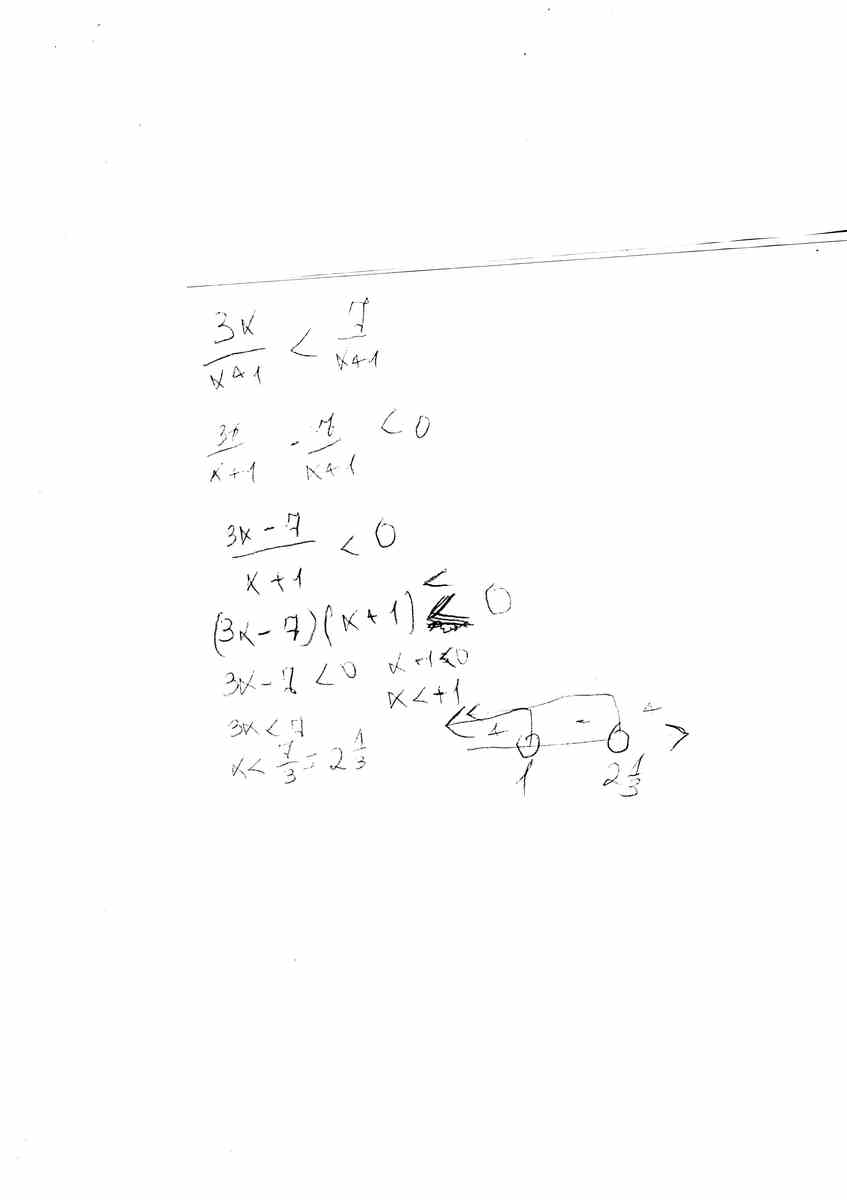 3x/x+1 < 7/x+1
3x/x+1 - 7/x+1 < 0
3x - 7/x + 1 < 0
(3x - 7)(x + 1) < 0
3x - 7 < 0 x + 1 < 0
3x < 7 x < +1
x < 7/3 = 2 1/3
+ - +
1 2 1/3